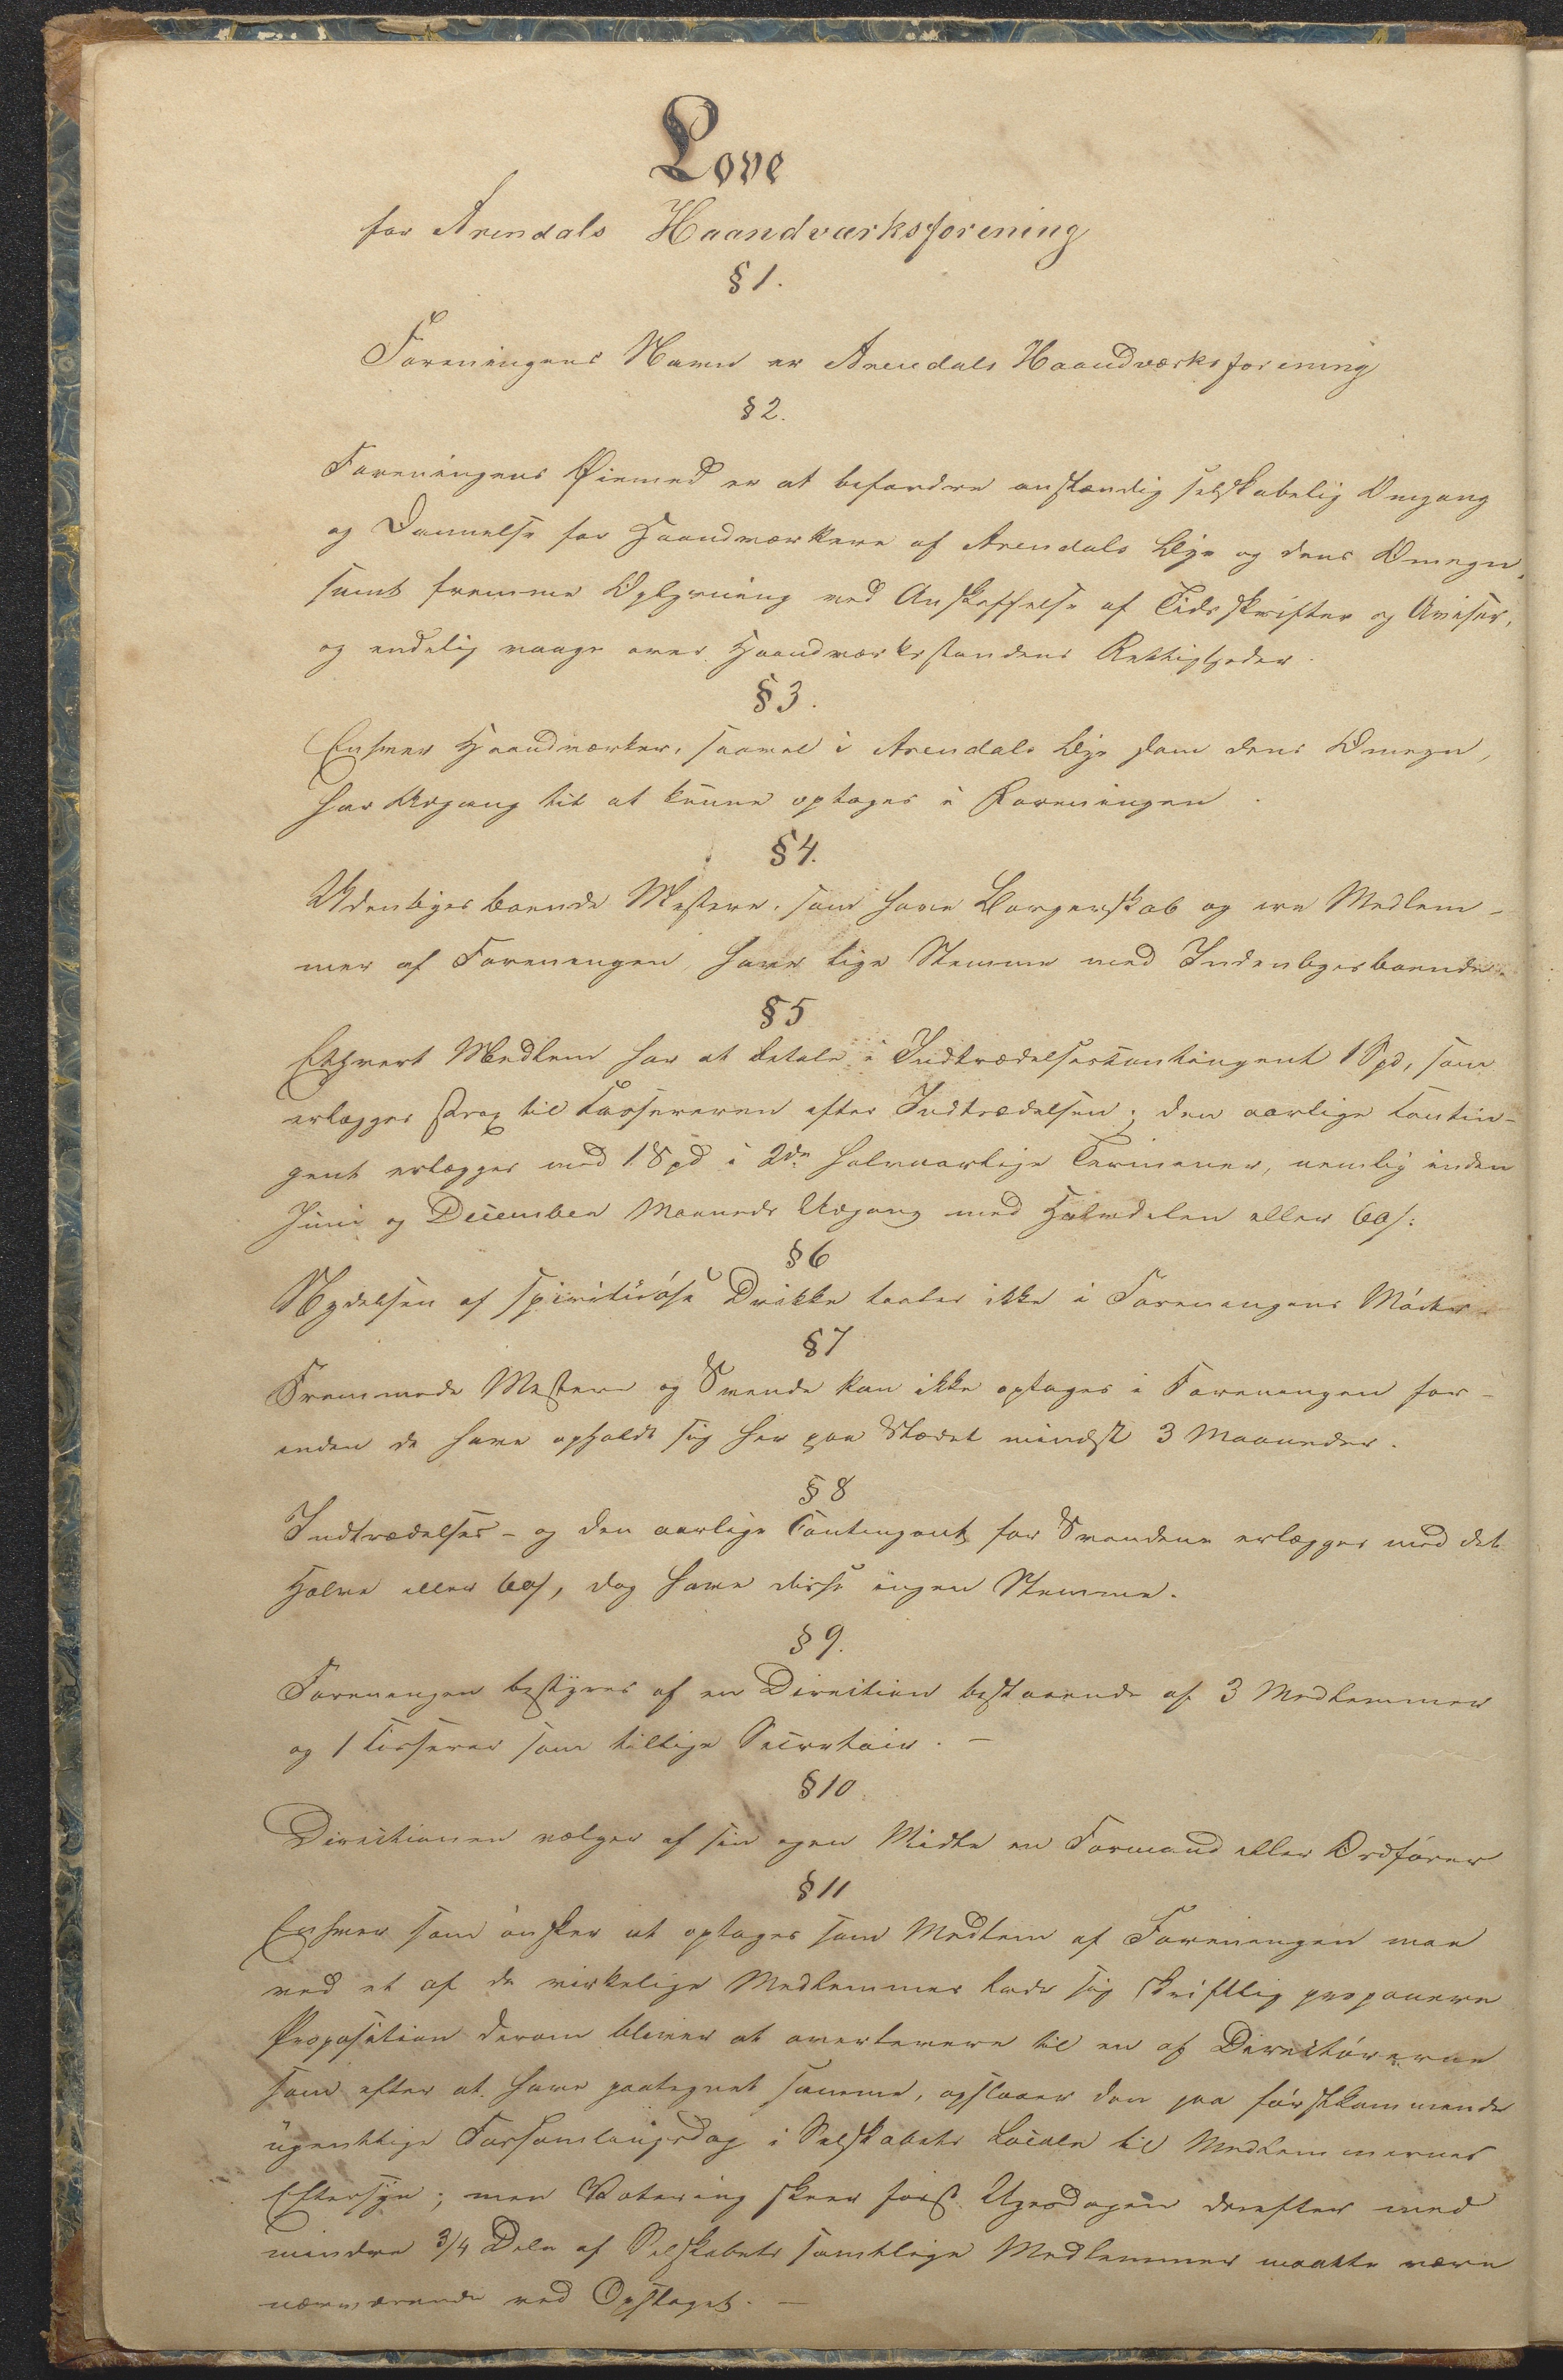 Love
for Arendals Haandværksforening
§ 1.
Foreningens Navn er Arendals Haandværksforening
§ 2.
Foreningens Øiemed er at befordre anstændig selskabelig Omgang
og Dannelse for Haandværkere af Arendals Bye og dens Omegn,
samt fremme Oplysning ved Anskaffelse af Tidsskrifter og Aviser,
og endelig vaage over Haandværksstandens Rettigheder.
§ 3.
Enhver Haandværker, saavel i Arendals Bye som dens Omegn,
har Adgang til at kunne optages i Foreningen.
§ 4.
Udenbyesboende Mestere, som have Borgerskab og ere Medlem-
mer af Foreningen, have lige Stemme med Indenbyesboende.
§ 5
Ethvert Medlem har at betale i Indtrædelsescontingent 1 Spd, som
erlægges strax til Cassereren efter Indtrædelsen; den aarlige Contin-
gent erlægges med 1 Spd i 2de halvaarlige Terminer, nemlig inden
Juni og December Maaneds Udgang med Halvdelen eller 60 s:
§ 6
Nydelsen af spirituöse Drikke taales ikke i Foreningens Möder.
§ 7
Fremmede Mestere og Svende kan ikke optages i Foreningen for-
inden de have opholdt sig her paa Stædet mindst 3 Maaneder.
§ 8
Indtrædelses- og den aarlige Contingent for Svendene erlægges med det
Halve eller 60 s, dog have disse ingen Stemme.
§ 9.
Foreningen bestyres af en Direction bestaaende af 3 Medlemmer
og 1 Casserer som tillige Secretair. —
§ 10.
Directionen vælger af sin egen Midte en Formand eller Ordförer
§ 11
Enhver som önsker at optages som Medlem af Foreningen maa
ved et af de virkelige Medlemmer lade sig skriftlig proponere
Proposition derom bliver at overlevere til en af Directörerne
som efter at have paategnet samme, opslaaer den paa förstkommende
ugentlige Forsamlingsdag i Selskabets Locale til Medlemmernes
Eftersyn; men Votering skeer först Ugedagen derefter med
mindre 3/4 Dele af Selskabets samtlige Medlemmer maatte være
nærværende ved Opslaget. —